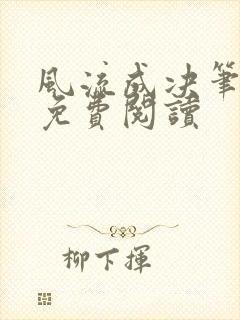 風流成决筆
免費閱讀
柳下揮